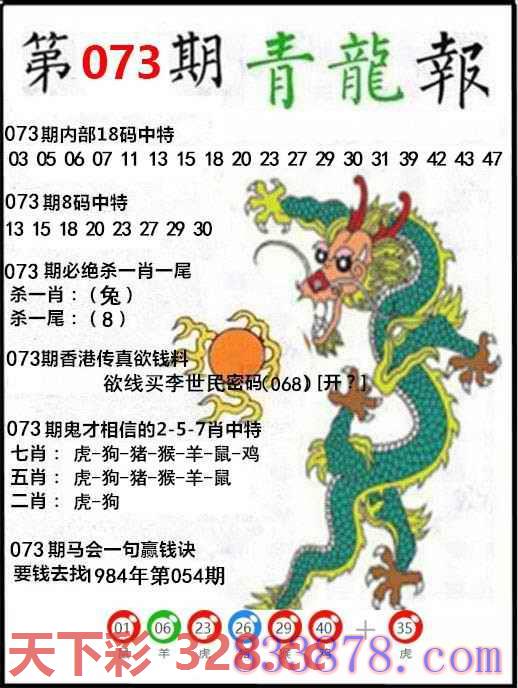 第073期青龍報
073期内部18码中特
03 05 06 07 11 13 15 18 20 23 27 29 30 31 39 42 43 47
073期8码中特
13 15 18 20 23 27 29 30
073期必绝杀一肖一尾
杀一肖：（兔）
杀一尾：（8）
073期香港传真欲钱料
欲线买李世民密码(068)[开?]
073期鬼才相信的2-5-7肖中特
七肖：虎-狗-猪-猴-羊-鼠-鸡
五肖：虎-狗-猪-猴-羊-鼠
二肖：虎-狗
073期马会一句赢钱诀
要钱去找1984年第054期
01 06 23 26 29 40 + 35
羊 虎 虎
天下彩
833878.com